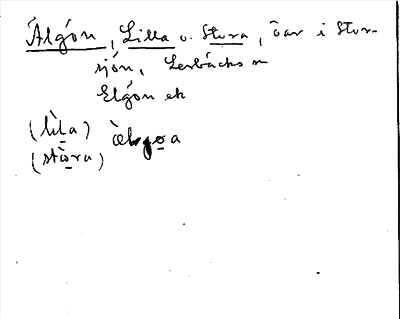 Älgön, Lilla o. Stora, öar i Stor-
sjön, Lerbäcks sn
Elgön ek
(lìla)
(stòra) æ̀lgoa